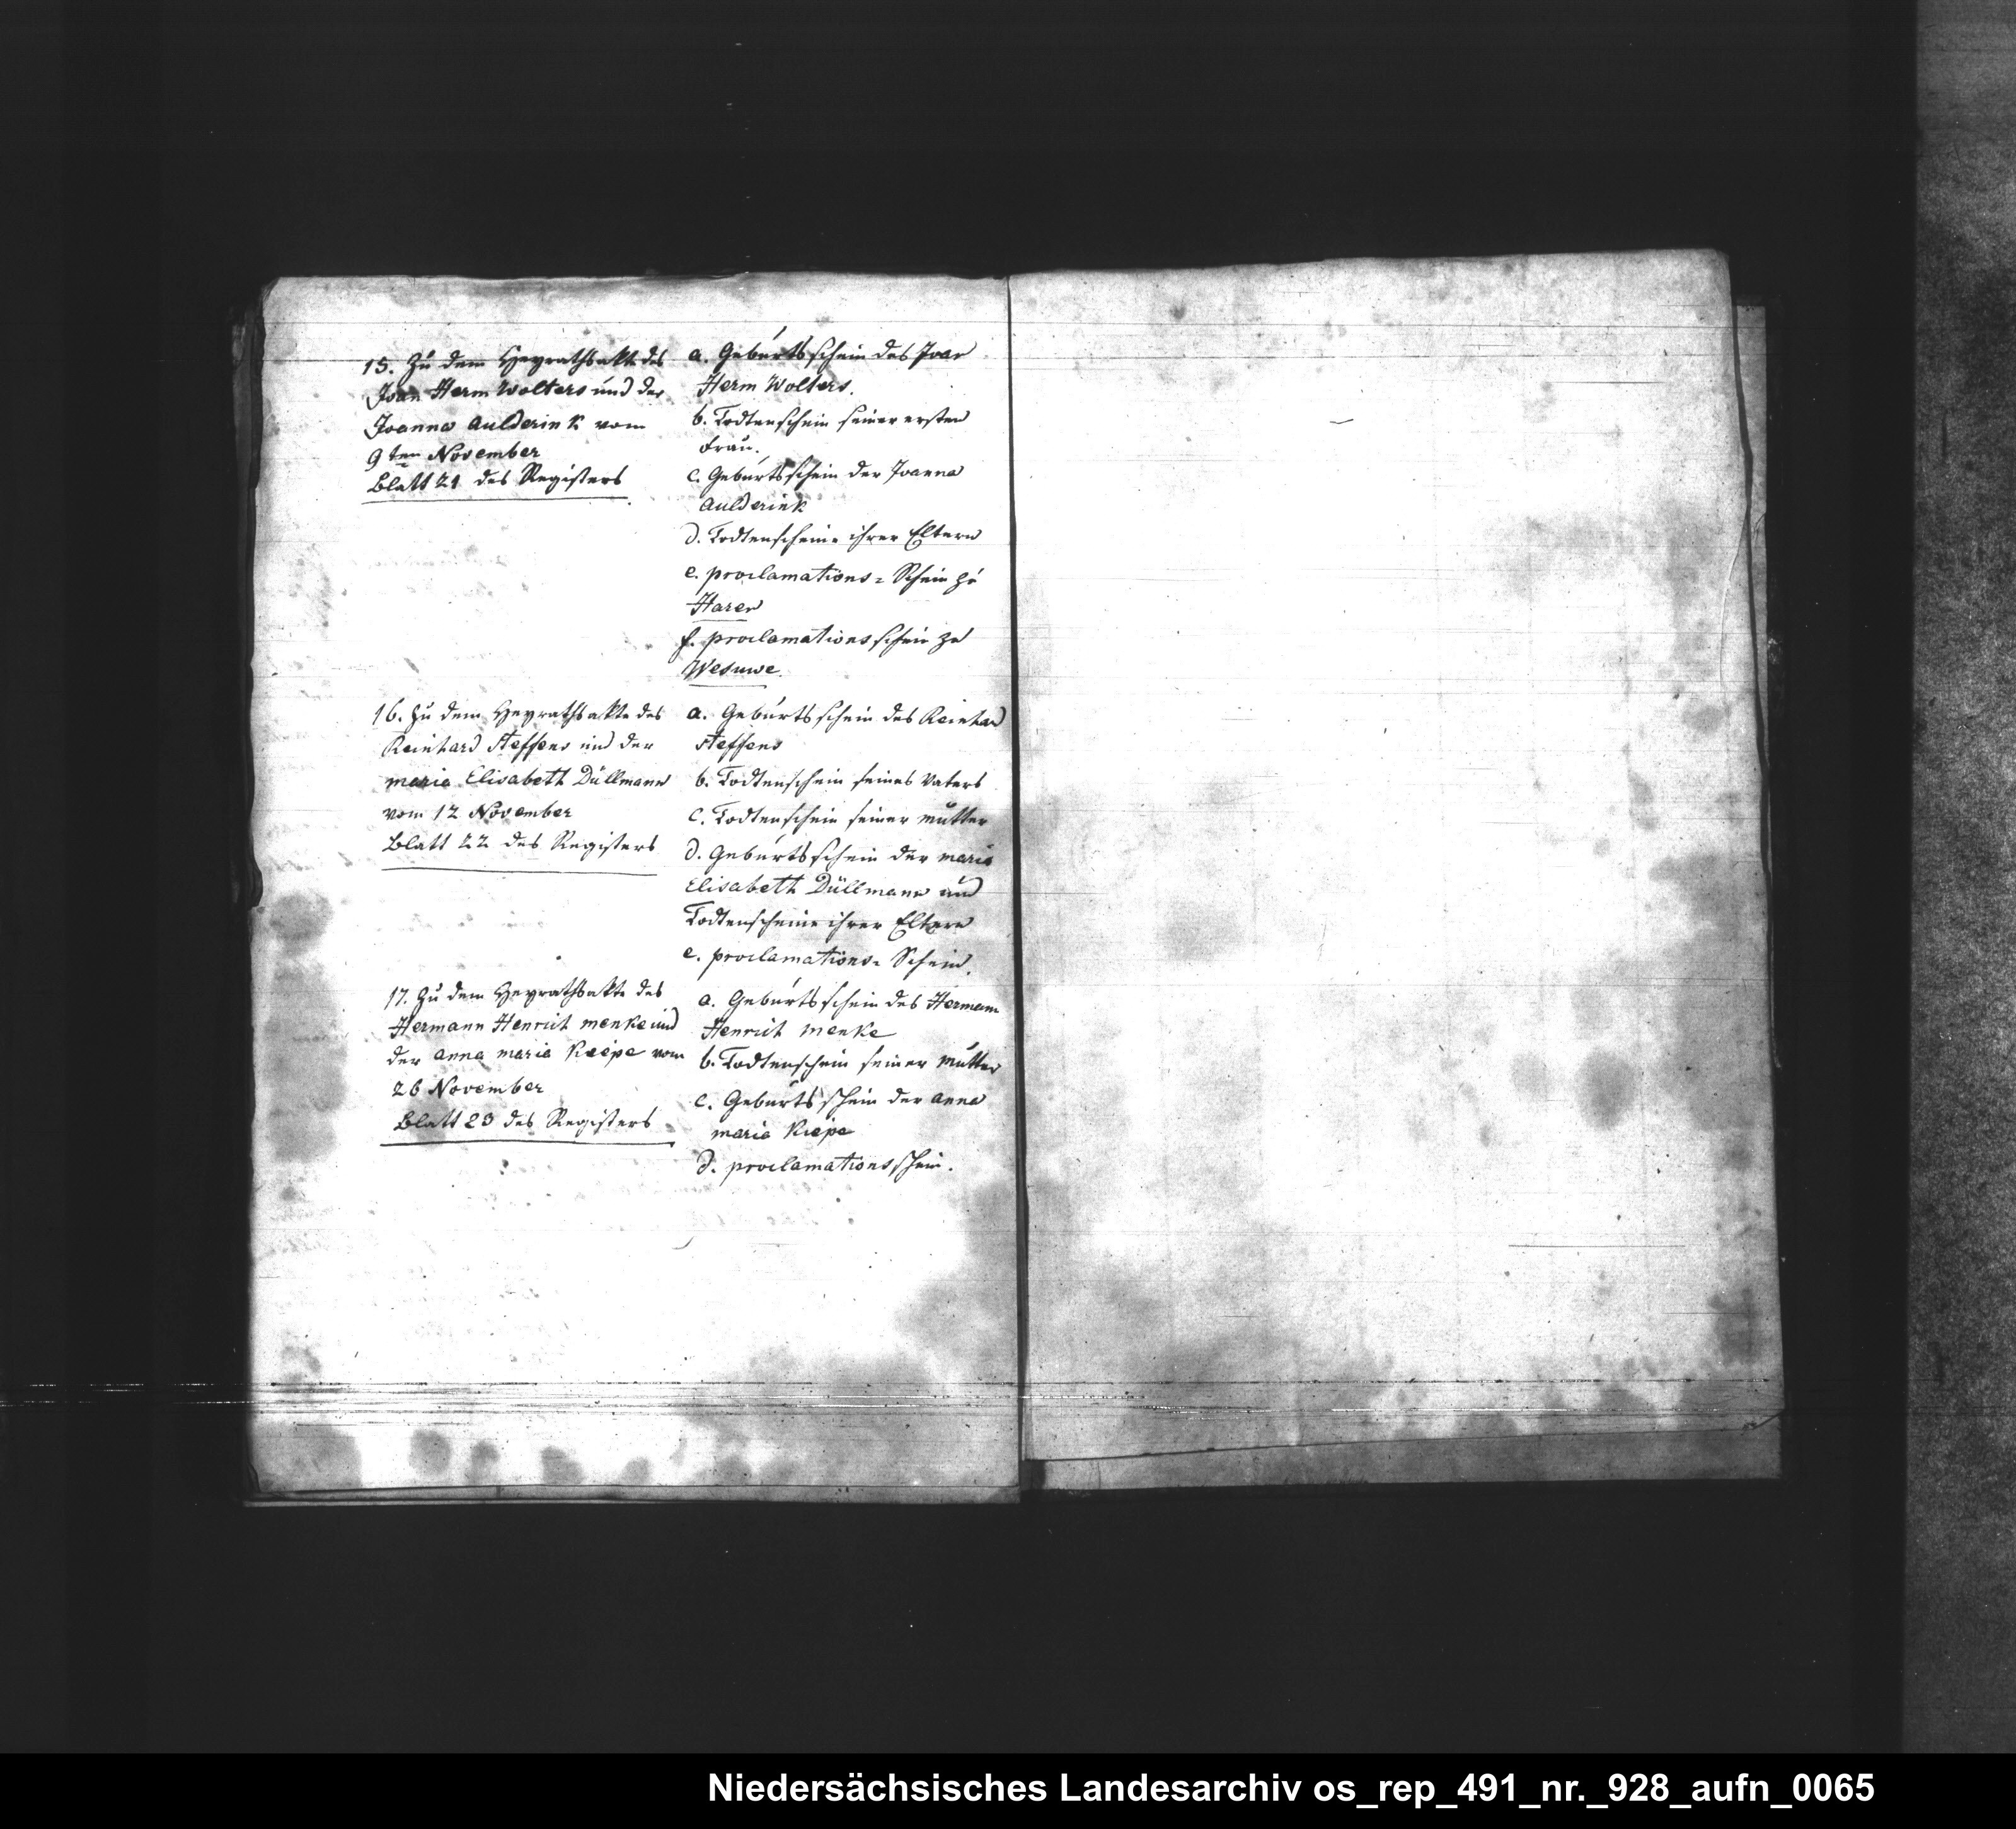 15. Zu dem Heyrathsakte des
Joan Herm Wolters und der
Joanna Aulderink vom
9ten November
Blatt 21 des Registers
a. Geburtsschein des Joan
Herm Wolters.
b. Todtenschein seiner ersten
Frau.
c. Geburtsschein der Joanna
Aulderink
d. Todtenscheine ihrer Eltern
e. proclamations=Schein zu
Haren
f. proclamationsschein zu
Wesuwe.
16. Zu dem Heyrathsakte des
Reinhard Steffens und der
maria Elisabeth Düllmann
vom 12 November
Blatt 22 des Registers
a. Geburtsschein des Reinhard
Steffens
b. Todtenschein seines Vaters
c. Todtenschein seiner mutter
d. Geburtsschein der maria
Elisabeth Düllmann und
Todtenscheine ihrer Eltern
e. proclamations=Schein.
17. Zu dem Heyrathsakte des
Hermann Henrich menke und
der anna maria Kiepe vom
26 November
Blatt 23 des Registers
a. Geburtsschein des Hermann
Henrich menke
b. Todtenschein seiner mutter
c. Geburtsschein der anna
maria Kiepe
d. proclamationsschein.
Niedersächsisches Landesarchiv os_rep_491_nr._928_aufn_0065